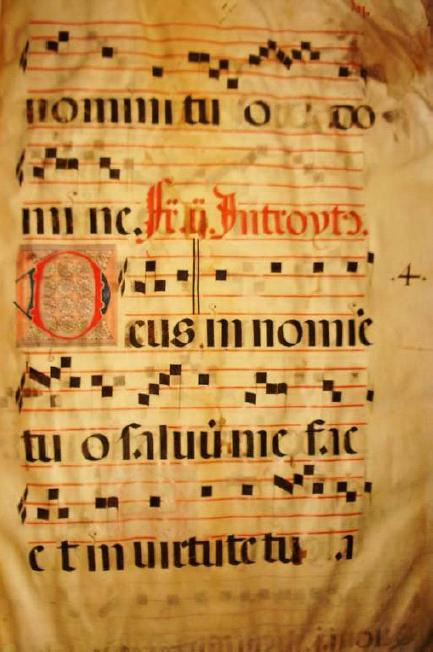 nomini tu o do
mi ne. Fr. ij. Introyto.
Deus in nomie
tu o saluū me fac
e t in uirtute tu .i
.4.